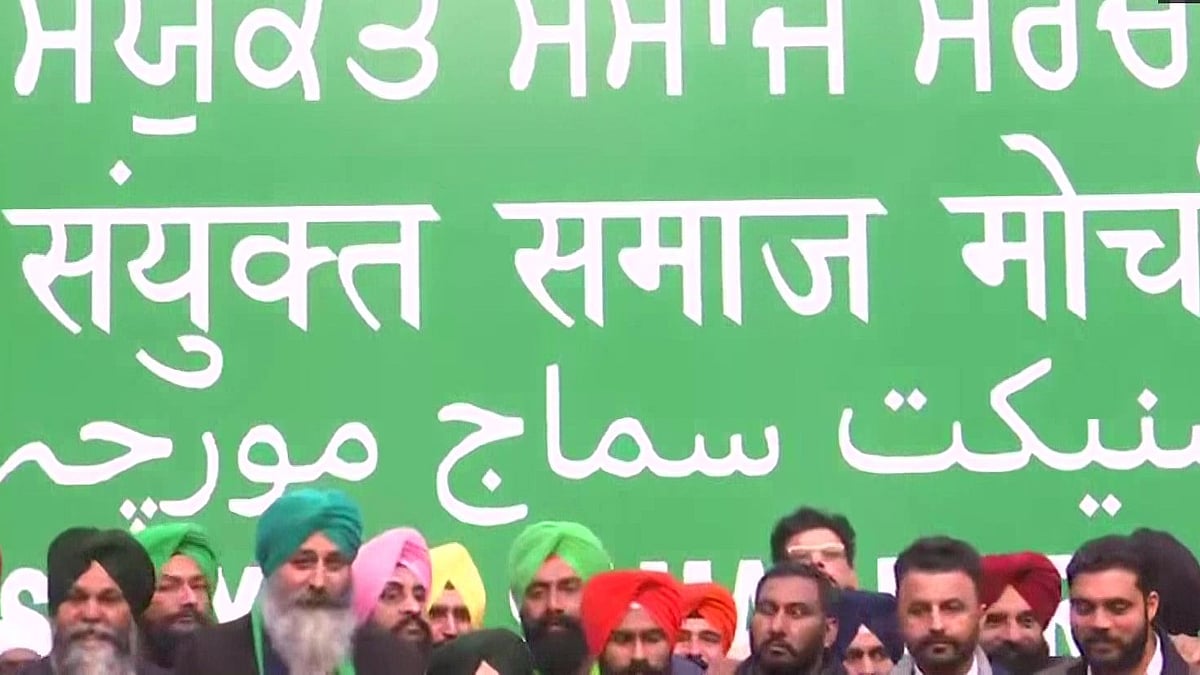 ਸੰਯੁਕਤ ਸਮਾਜ ਮੋਰਚ
संयुक्त समाज मोर्च
سنیکت سماج مورچہ